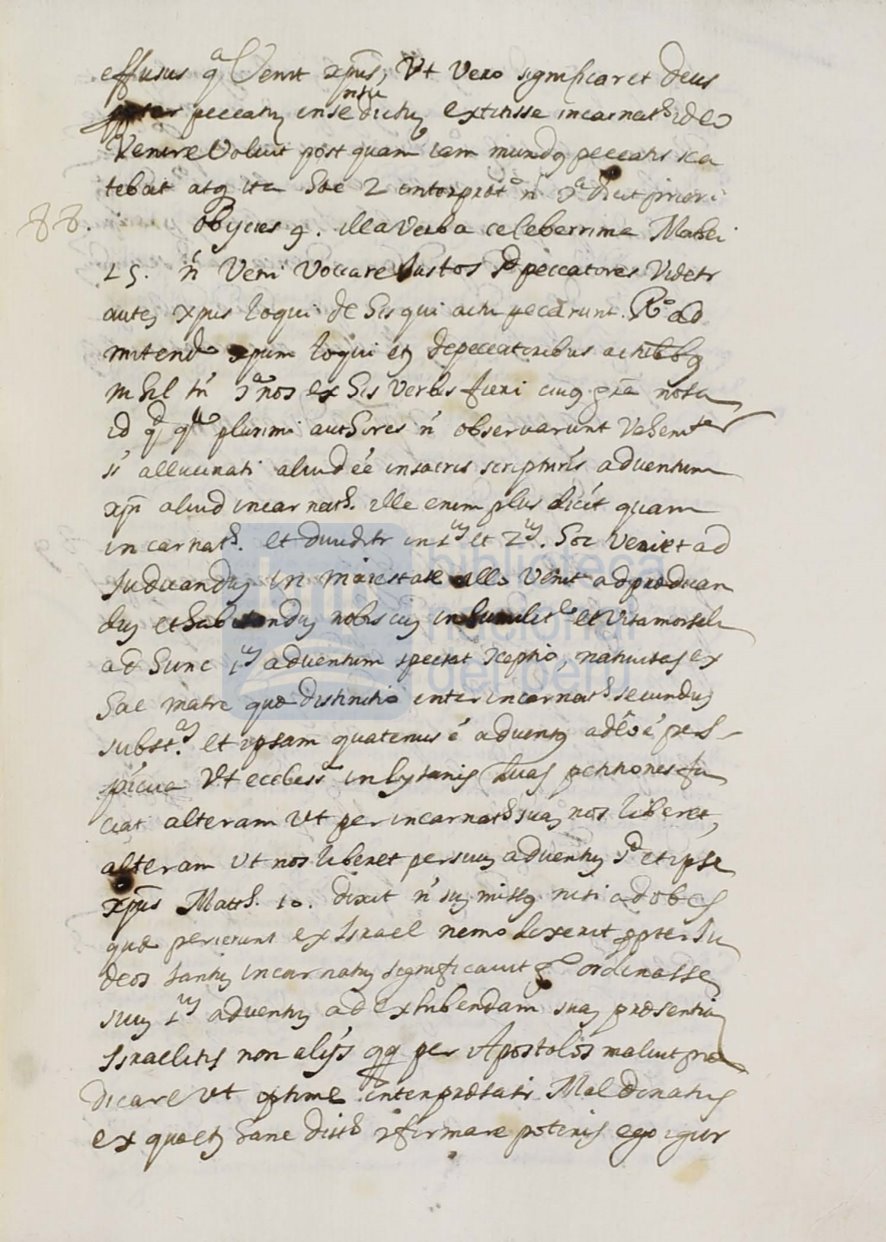 effusus qª Venit xpus, Vt Vero significaret Deus
peccatũ intuitu extitisse incarnat.s ideo
Venire Voluit post quam iam mundus peccatis sca
tebat atq ita hæc 2 interpret.o ñ dicit priori
88. Obijcies 9. illa Verba celeberrima Mathei
ñ Veni Voccare Justos sd peccatores Videtr
autẽ xpus loqui de his qui actu pecarunt. R.o ad
mitendo xpum loqui etĩ de peccatoribus actualibus
nihil tñ nos ex his Verbis fieri cuius gra nota
id qd plurimi authores ñ observarunt Vehemter
st allucinati aliud ẽe in sacris scripturis adventum
xpi aliud incarnat.s ille enim plus dicit quam
incarnat.s. et dividitr in 1ũ et 2ũ. hoc Veniet ad
Judicandũ in maiestate illo Venit ad prædican
dũ et habitandũ nobiscũ in humilit.e et Vita mortali
ad hunc 1ũ adventum spectat 9ceptio, nativitas ex
hac matre quæ distinctio inter incarnat.s secundũ
subst.ã et ipsam quatenus ẽ adventus adeo ẽ pers-
picua Vt eccless.a in lytanijs duas petitiones fa
ciat alteram Vt per incarnat.s suã nos liberet,
alteram Vt nos liberet per suũ adventũ sd et ipse
xpus Matth. 10. dixit ñ sũ missus nisi ad obes
quæ perierunt ex Israel nemo dixerit propter Ju
deos tantũ incarnatũ significavit g.o ordinasse
suũ 1ũ adventũ ad exhibendam suã præsentiã
Israelitis non alijs qq per Apostolos maluit præ
dicare Vt optime interpretatr Maldonatus
ex quo etĩ sane dict.s 9firmare poteris ego igitur